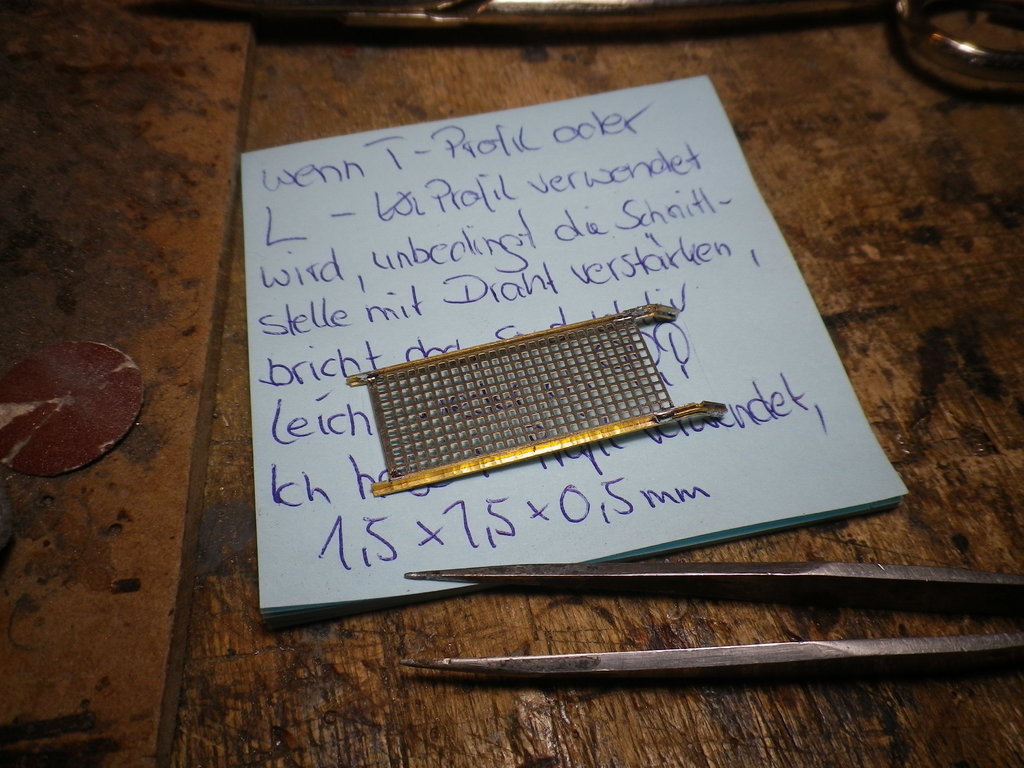 wenn T-Profil oder
L - Profil verwendet
wird, unbedingt die Schnitt-
stelle mit Draht verstärken,
bricht
leich
Ich
1,5 x 1,5 x 0,5 mm